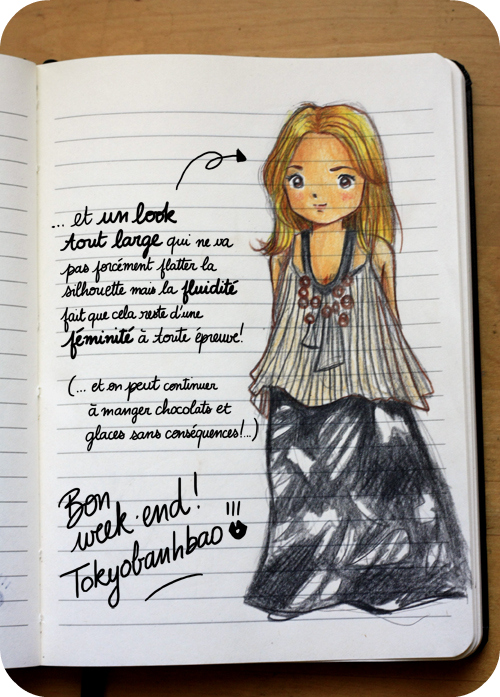 ... et un look
tout large qui ne va
pas forcément flatter la
silhouette mais la fluidité
fait que cela reste d'une
féminité à toute épreuve!
(... et on peut continuer
à manger chocolats et
glaces sans conséquences!...)
Bon
week-end!
Tokyobanhbao